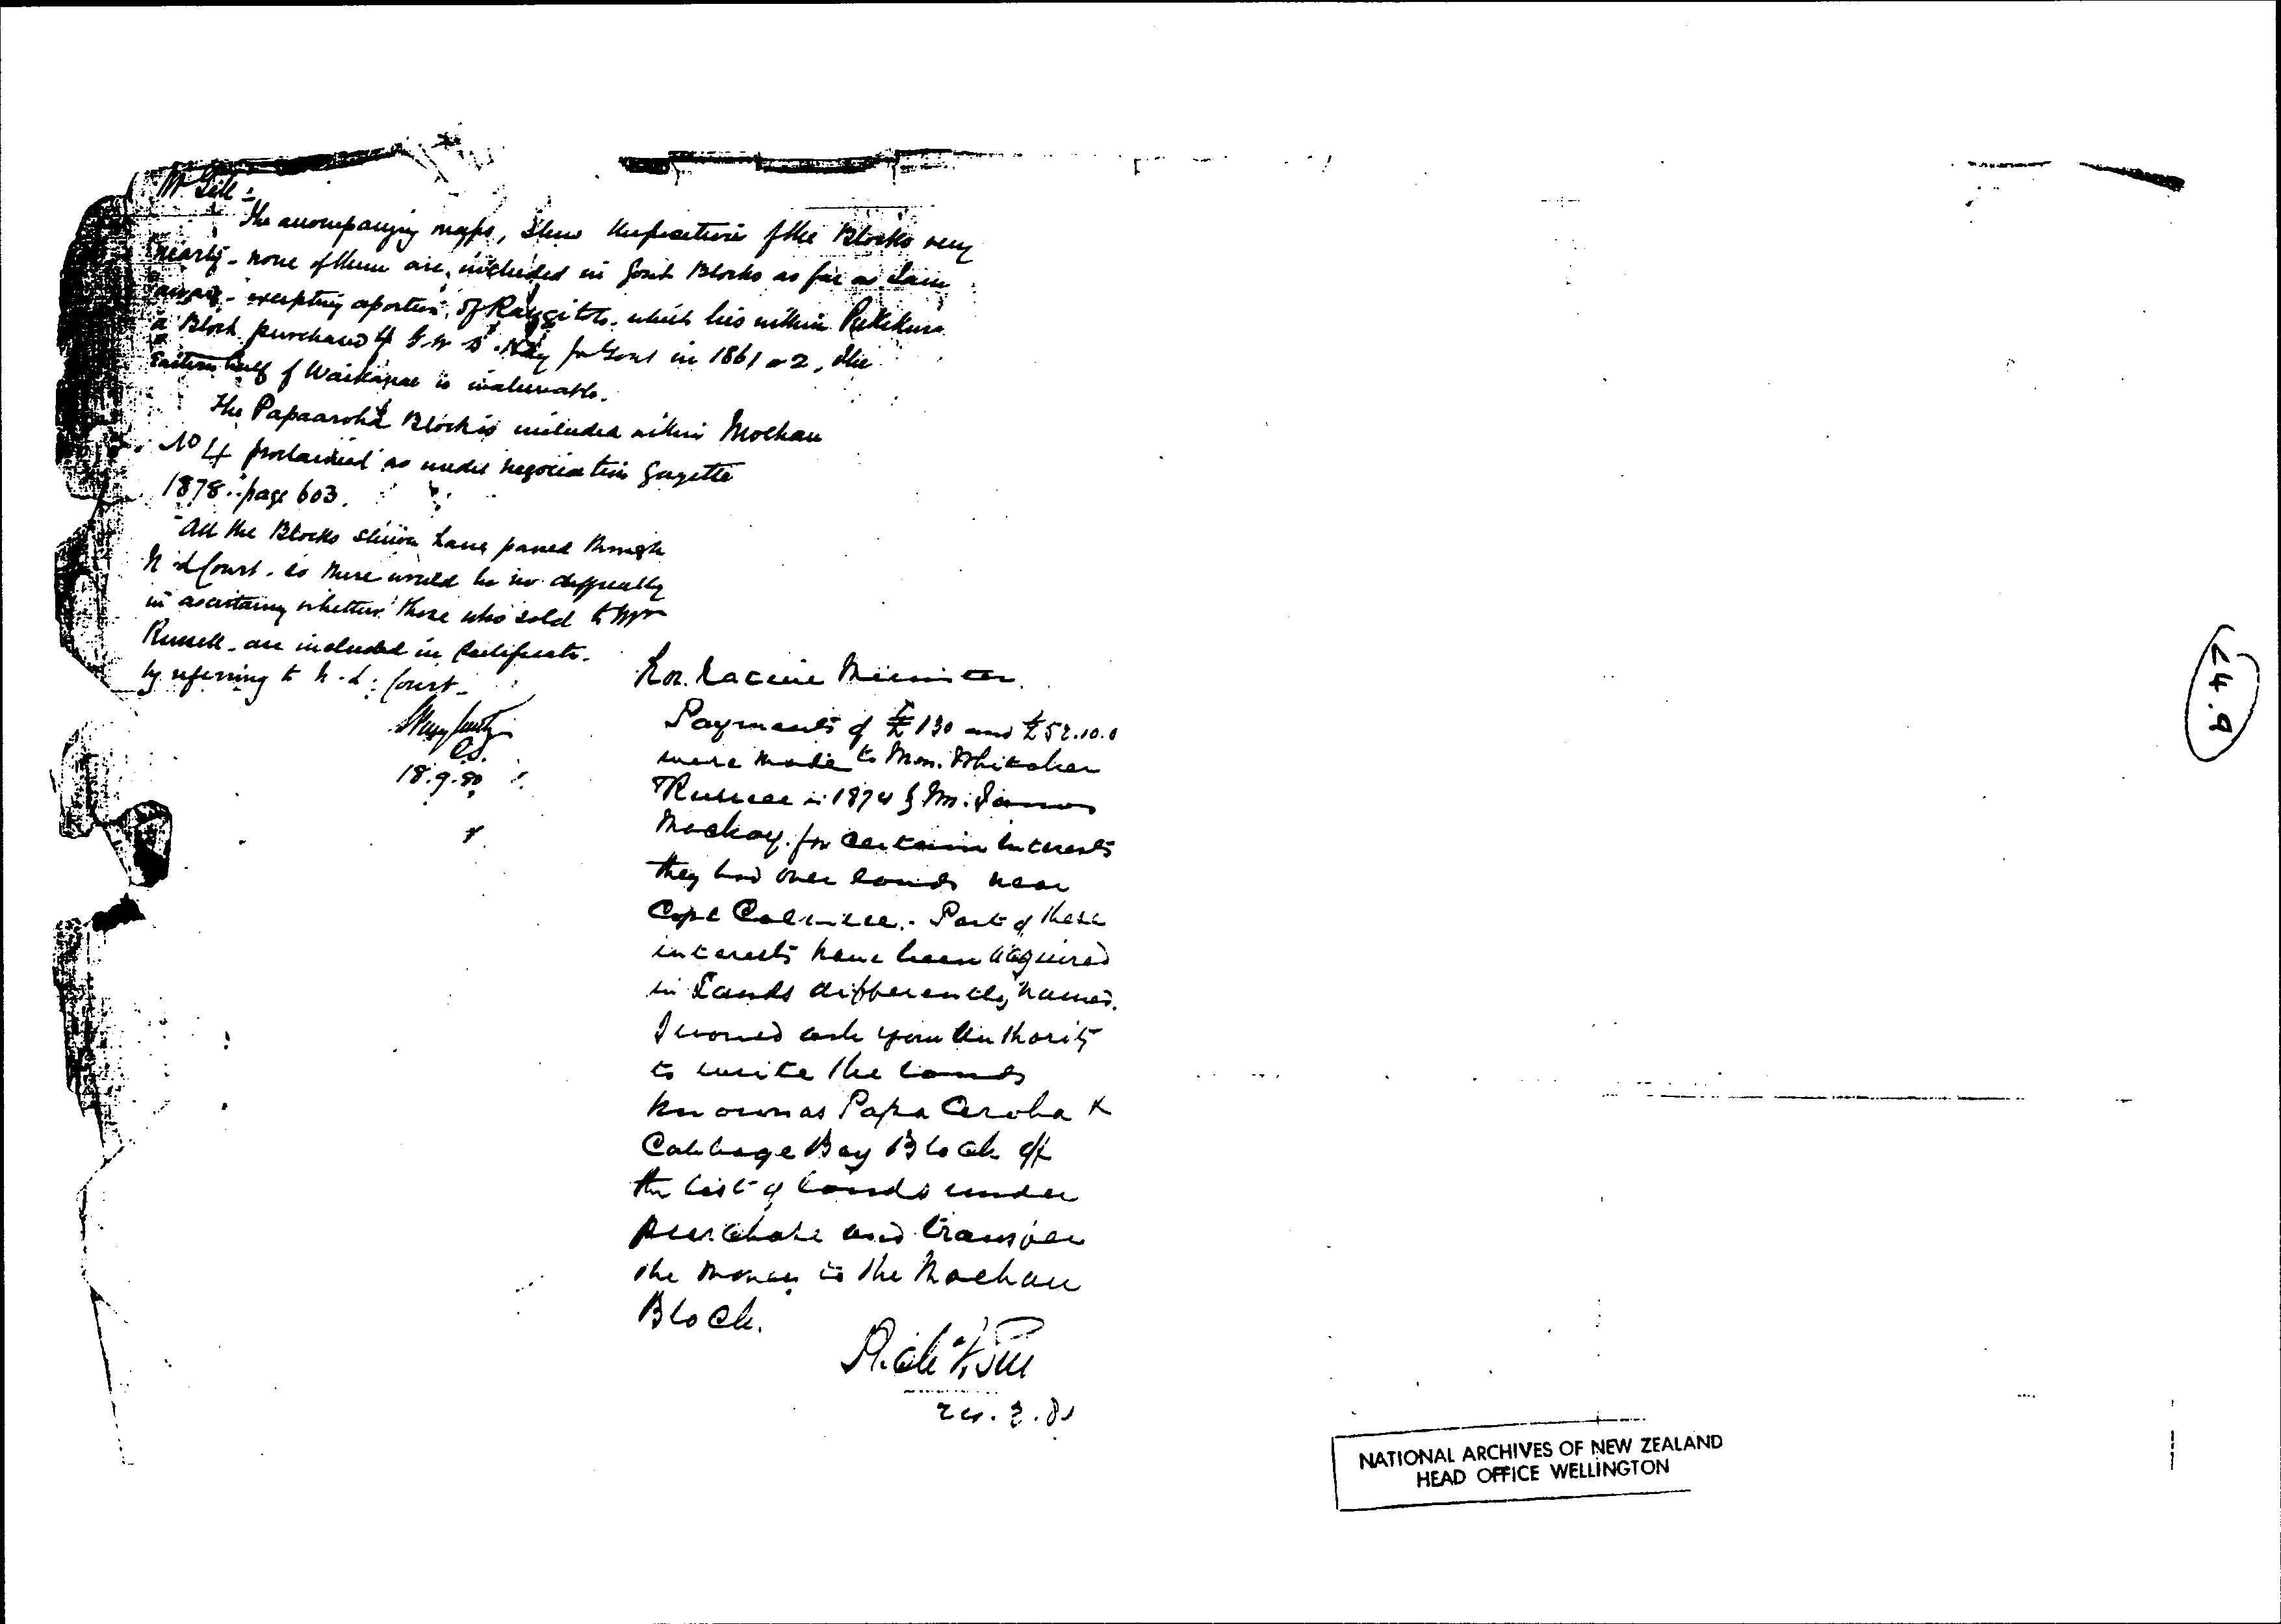 Mr Gill :-
The accompanying maps, shew the position of the Blocks very
nearly - none of them are included in Govt Blocks as far as I am
aware - excepting a portion of Rangitoto which lies within
a Block purchased by Kay for Govt in 1861 or 2, the
Eastern half of is inalienable.
The Papaaroha Block is included within Moehau
No 4 proclaimed as under negociation Gazette
1878. page 603.
All the Blocks shewn have passed through
N. L Court. So there would be no difficulty
in ascertaining whether those who sold to Mr
Russell - are included in Certificate.
by referring to N. L. Court -
18.9.80
Hon. Native Minister.
Payments of £130 and £52.10.0
were made to Mess. Whitaker
Russell in 1874 by Mr. James
Mackay. for certain interests
they had over lands near
Cape Colville. Part of these
interests have been acquired
in Lands differently named.
I would ask your authority
to write the lands
known as Papa Aroha &
Cabbage Bay Block off
the list of lands under
purchase and transfer
the money to the Moehau
Block.
Rich J Gill
NATIONAL ARCHIVES OF NEW ZEALAND
HEAD OFFICE WELLINGTON